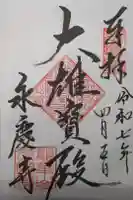 奉拝
令和七年
四月五日
大雄寳殿
永慶寺